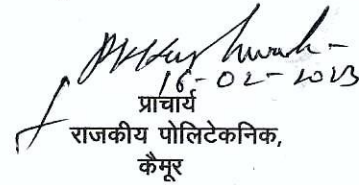 16-02-2023
प्राचार्य
राजकीय पोलिटेकनिक,
कैमूर